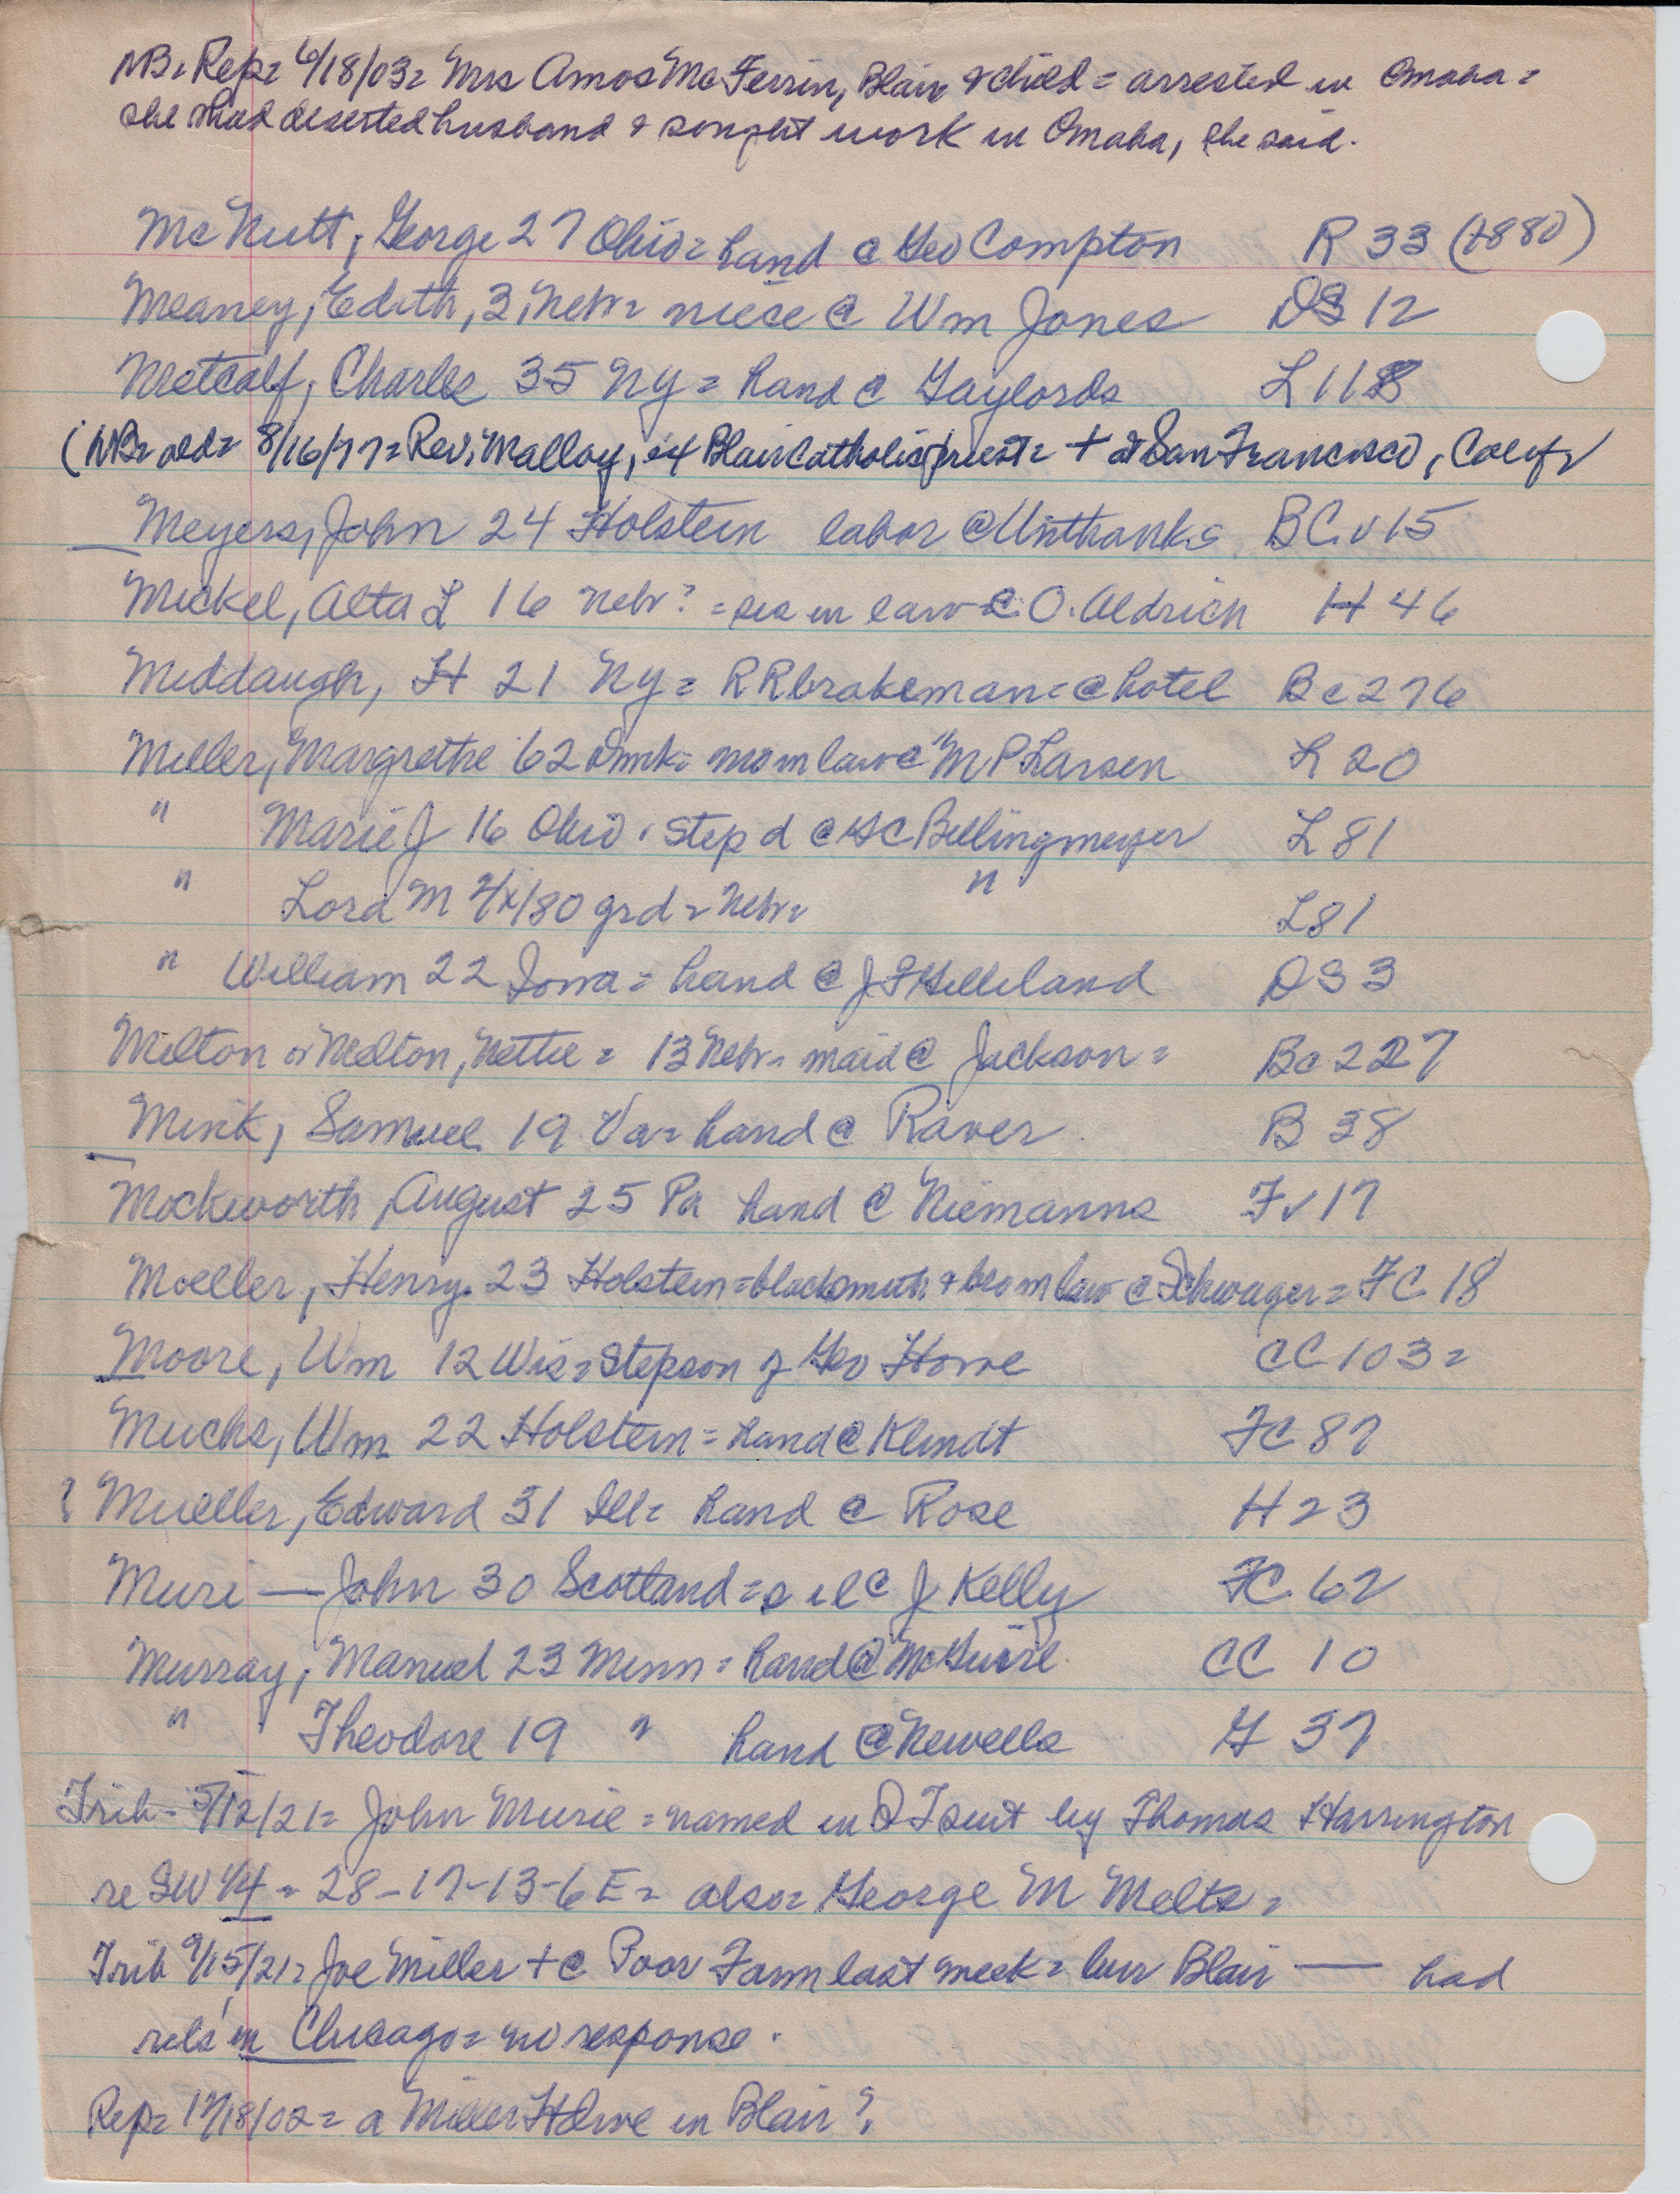 NB= Rep= 6/18/03= Mrs Amos McFerrin, Blair & child = arrested in Omaha =
she had deserted husband & sought work in Omaha, she said.
McNutt, George 27 Ohio= hand @ Geo Compton R 33 (1880)
Meaney, Edith, 3, Nebr= niece @ Wm Jones DS 12
Metcalf, Charles 35 NY = hand @ Gaylords L 118
(NB= old= 8/16/77= Rev. Malloy, Blair Catholic priest= + at San Francisco, Calif
Meyers, John 24 Holstein labor @ Unthanks BC v 15
Mickel, Alta L 16 Nebr? = sis in law @ O. Aldrich H 46
Middaugh, H 21 NY = RR brakeman = @ hotel Bc 276
Miller, Margrethe 62 Dmk= mo in law @ M P Larsen L 20
" Marie J 16 Ohio, step d @ HC Billingmeyer L 81
" Lora M /80 grd = Nebr= " L81
" William 22 Iowa = hand @ J F Gilleland DS 3
Milton or Nelton, Nettie = 13 Nebr= maid @ Jackson = Bc 227
Mink, Samuel 19 Va= hand @ Raver B 38
Mockworth, August 25 Pa hand @ Niemanns F v 17
Moeller, Henry 23 Holstein = blacksmith & bro in law @ Schwager = FC 18
Moore, Wm 12 Wis= Stepson of Geo Howe CC 103 =
Muchs, Wm 22 Holstein = hand @ Klindt FC 87
? Mueller, Edward 31 Ill= hand @ Rose H 23
Muri — John 30 Scotland = s il @ J Kelly FC 62
Murray, Manuel 23 Minn = hand @ McGuire CC 10
" Theodore 19 " hand @ Newells G 37
Trib = 5/12/21= John Murie = named in QT suit by Thomas Harrington
re SW 1/4 = 28-17-13-6E= also= George M Melts =
Trib 9/15/21= Joe Miller + @ Poor Farm last week = bur Blair — had
rels in Chicago = no response.
Rep= 12/18/02 = a Miller Howe in Blair?